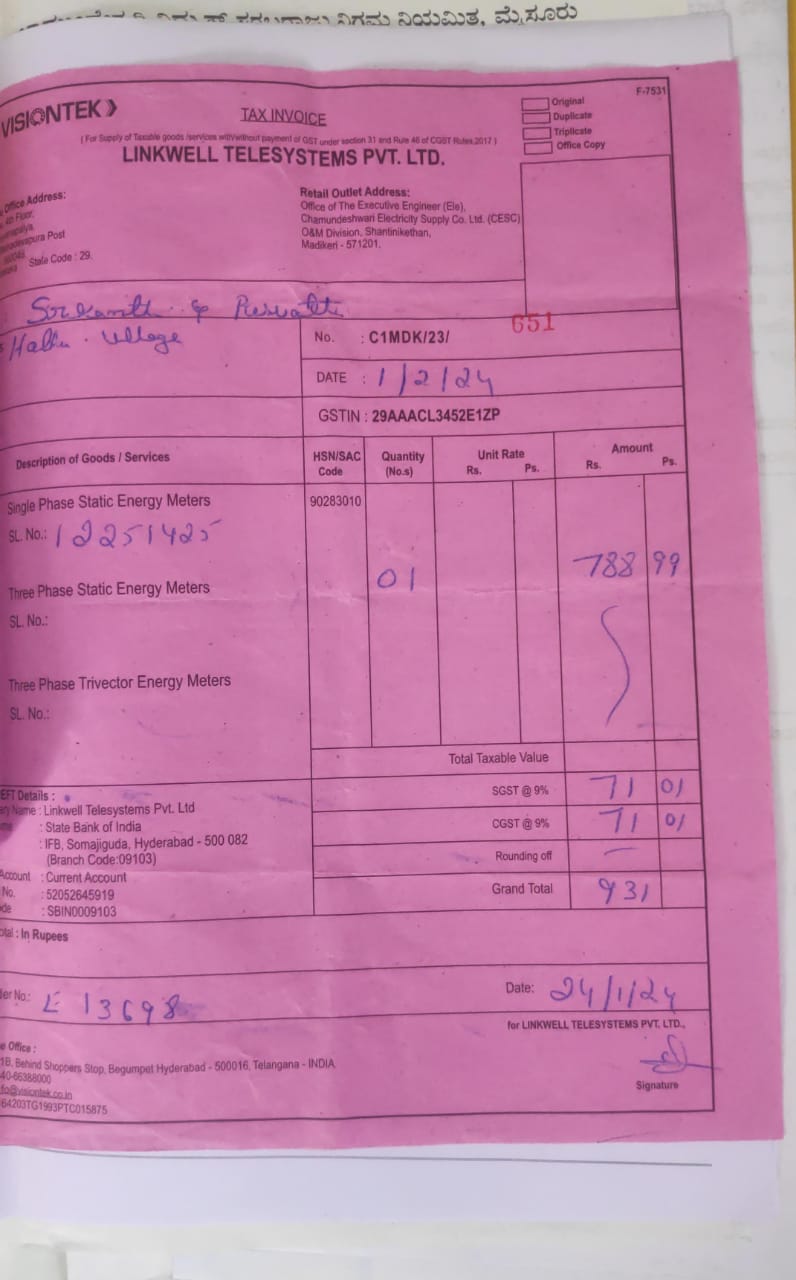 ನಿಗಮ ನಿಯಮಿತ, ಮೈಸೂರು
F-7531
VISIONTEK
TAX INVOICE
Original
Duplicate
Triplicate
Office Copy
(For Supply of Taxable goods /services with/without payment of GST under section 31 and Rule 46 of CGST Rules 2017)
LINKWELL TELESYSTEMS PVT. LTD.
Office Address:
4th Floor,
Post
State Code : 29.
Retail Outlet Address:
Office of The Executive Engineer (Ele),
Chamundeshwari Electricity Supply Co. Ltd. (CESC)
O&M Division, Shantinikethan,
Madikeri - 571201.
Village
No. : C1MDK/23/ 651
DATE : 1/2/24
GSTIN : 29AAACL3452E1ZP
Description of Goods / Services HSN/SAC Code Quantity (No.s) Unit Rate Rs. Ps. Amount Rs. Ps.
Single Phase Static Energy Meters 90283010
SL. No.: 12251425
01 788 99
Three Phase Static Energy Meters
SL. No.:
Three Phase Trivector Energy Meters
SL. No.:
Total Taxable Value
SGST @ 9% 71 01
CGST @ 9% 71 01
Rounding off —
Grand Total 931
EFT Details :
ary Name : Linkwell Telesystems Pvt. Ltd
: State Bank of India
: IFB, Somajiguda, Hyderabad - 500 082
(Branch Code:09103)
Account : Current Account
No. : 52052645919
de : SBIN0009103
otal : In Rupees
der No.: E 13698
Date: 24/1/24
for LINKWELL TELESYSTEMS PVT. LTD.,
Signature
e Office :
1B, Behind Shoppers Stop, Begumpet Hyderabad - 500016, Telangana - INDIA
40-66388000
fo@visiontek.co.in
64203TG1993PTC015875